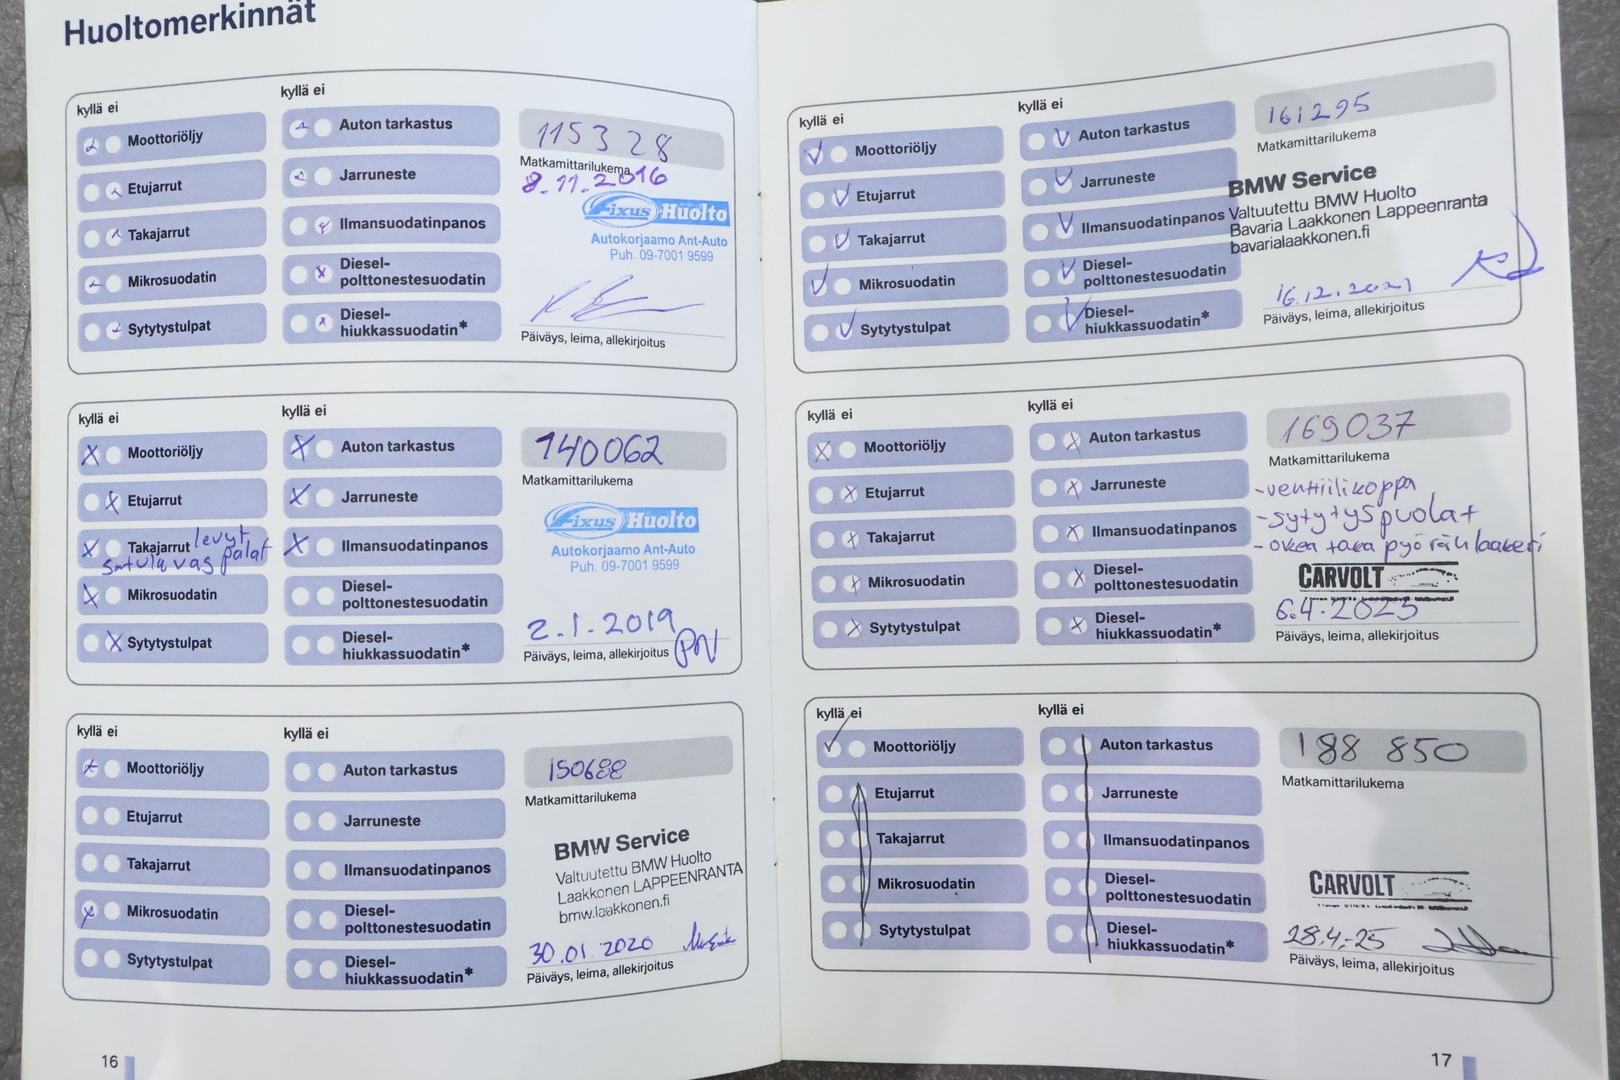 Huoltomerkinnät
kyllä ei
kyllä ei
Moottoriöljy
Etujarrut
Takajarrut
Mikrosuodatin
Sytytystulpat
Auton tarkastus
Jarruneste
Ilmansuodatinpanos
Diesel-
polttonestesuodatin
Diesel-
hiukkassuodatin*
115328
Matkamittarilukema
8.11.2016
Fixus Huolto
Autokorjaamo Ant-Auto
Puh. 09-7001 9599
Päiväys, leima, allekirjoitus
kyllä ei
kyllä ei
Moottoriöljy
Etujarrut
Takajarrut levyt
satula vas palat
Mikrosuodatin
Sytytystulpat
Auton tarkastus
Jarruneste
Ilmansuodatinpanos
Diesel-
polttonestesuodatin
Diesel-
hiukkassuodatin*
140062
Matkamittarilukema
Fixus Huolto
Autokorjaamo Ant-Auto
Puh. 09-7001 9599
2.1.2019
Päiväys, leima, allekirjoitus PN
kyllä ei
kyllä ei
Moottoriöljy
Etujarrut
Takajarrut
Mikrosuodatin
Sytytystulpat
Auton tarkastus
Jarruneste
Ilmansuodatinpanos
Diesel-
polttonestesuodatin
Diesel-
hiukkassuodatin*
150688
Matkamittarilukema
BMW Service
Valtuutettu BMW Huolto
Laakkonen LAPPEENRANTA
bmw.laakkonen.fi
30.01.2020
Päiväys, leima, allekirjoitus
16
kyllä ei
kyllä ei
Moottoriöljy
Etujarrut
Takajarrut
Mikrosuodatin
Sytytystulpat
Auton tarkastus
Jarruneste
Ilmansuodatinpanos
Diesel-
polttonestesuodatin
Diesel-
hiukkassuodatin*
161295
Matkamittarilukema
BMW Service
Valtuutettu BMW Huolto
Bavaria Laakkonen Lappeenranta
bavarialaakkonen.fi
16.12.2021
Päiväys, leima, allekirjoitus
kyllä ei
kyllä ei
Moottoriöljy
Etujarrut
Takajarrut
Mikrosuodatin
Sytytystulpat
Auton tarkastus
Jarruneste
Ilmansuodatinpanos
Diesel-
polttonestesuodatin
Diesel-
hiukkassuodatin*
169037
Matkamittarilukema
-venttiilikoppa
-sytytyspuolat
-oikea taka pyöränlaakeri
CARVOLT
6.4.2023
Päiväys, leima, allekirjoitus
kyllä ei
kyllä ei
Moottoriöljy
Etujarrut
Takajarrut
Mikrosuodatin
Sytytystulpat
Auton tarkastus
Jarruneste
Ilmansuodatinpanos
Diesel-
polttonestesuodatin
Diesel-
hiukkassuodatin*
188 850
Matkamittarilukema
CARVOLT
28.4.-25
Päiväys, leima, allekirjoitus
17